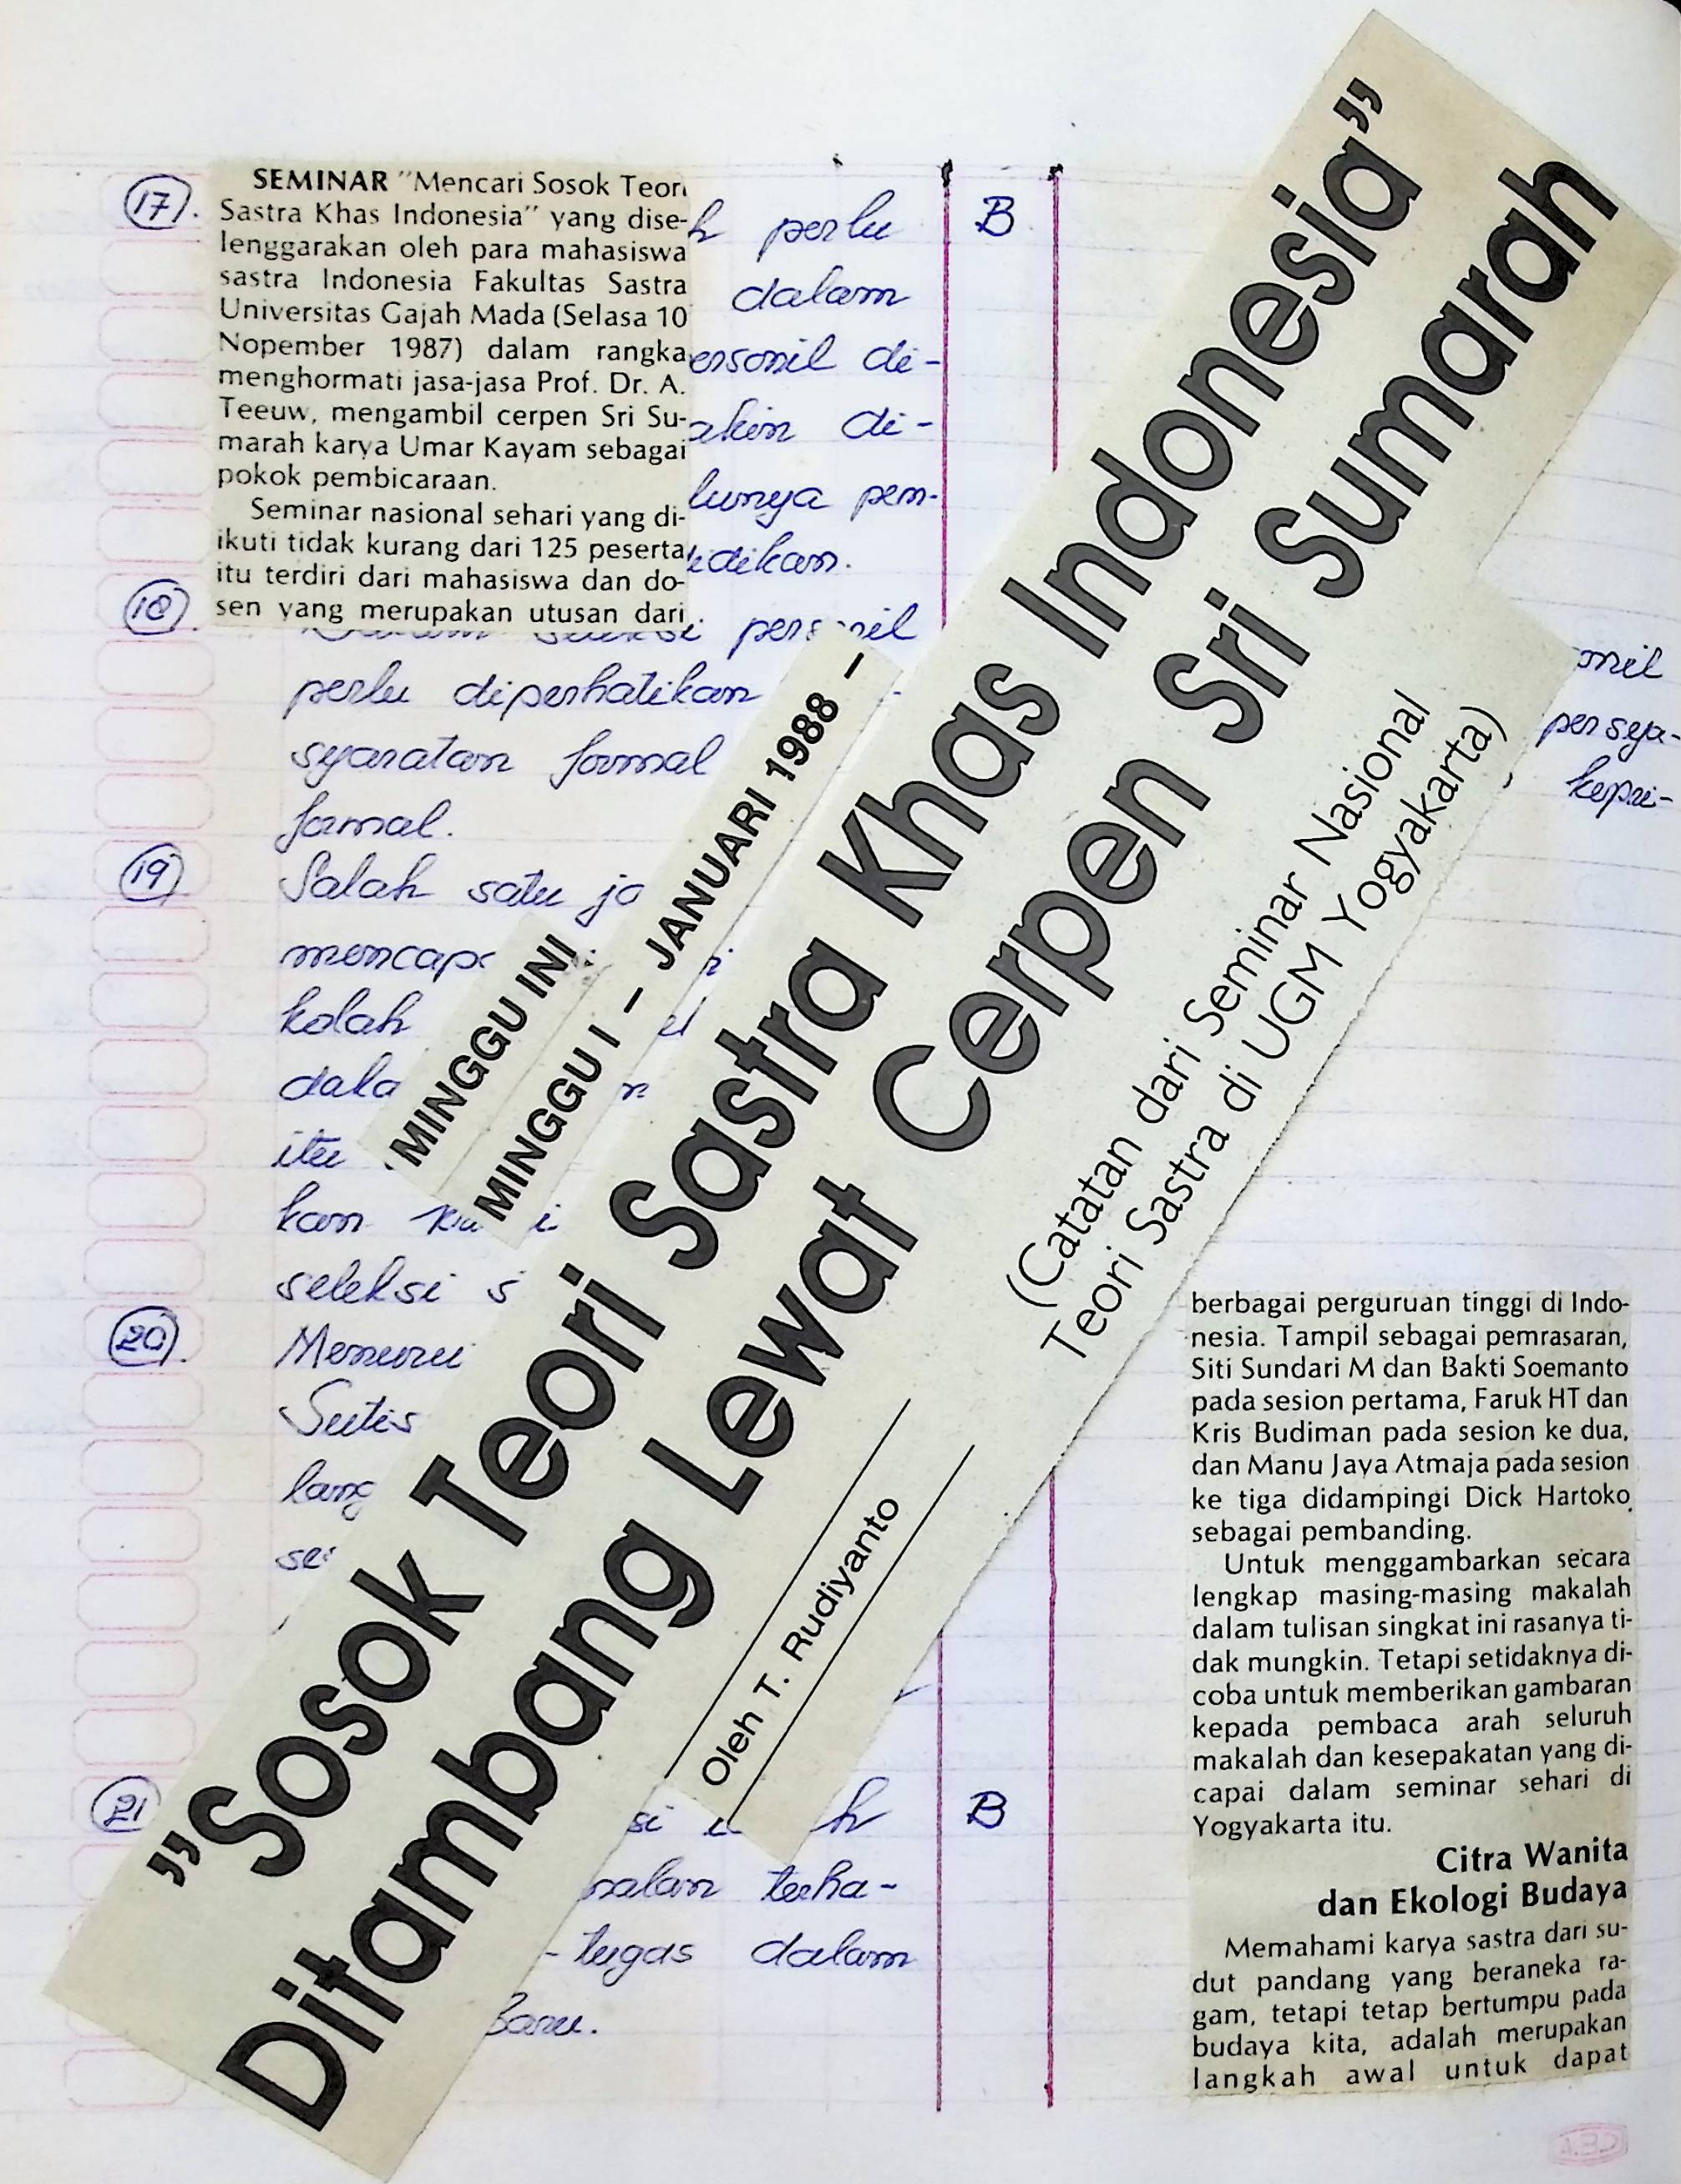 "Sosok Teori Sastra Khas Indonesia"
Ditambang Lewat Cerpen Sri Sumarah
(Catatan dari Seminar Nasional
Teori Sastra di UGM Yogyakarta)
Oleh T. Rudiyanto
MINGGU INI
MINGGU I – JANUARI 1988 –
SEMINAR "Mencari Sosok Teori
Sastra Khas Indonesia" yang dise-
lenggarakan oleh para mahasiswa
sastra Indonesia Fakultas Sastra
Universitas Gajah Mada (Selasa 10
Nopember 1987) dalam rangka
menghormati jasa-jasa Prof. Dr. A.
Teeuw, mengambil cerpen Sri Su-
marah karya Umar Kayam sebagai
pokok pembicaraan.
Seminar nasional sehari yang di-
ikuti tidak kurang dari 125 peserta
itu terdiri dari mahasiswa dan do-
sen yang merupakan utusan dari
berbagai perguruan tinggi di Indo-
nesia. Tampil sebagai pemrasaran,
Siti Sundari M dan Bakti Soemanto
pada sesion pertama, Faruk HT dan
Kris Budiman pada sesion ke dua,
dan Manu Jaya Atmaja pada sesion
ke tiga didampingi Dick Hartoko
sebagai pembanding.
Untuk menggambarkan secara
lengkap masing-masing makalah
dalam tulisan singkat ini rasanya ti-
dak mungkin. Tetapi setidaknya di-
coba untuk memberikan gambaran
kepada pembaca arah seluruh
makalah dan kesepakatan yang di-
capai dalam seminar sehari di
Yogyakarta itu.
Citra Wanita
dan Ekologi Budaya
Memahami karya sastra dari su-
dut pandang yang beraneka ra-
gam, tetapi tetap bertumpu pada
budaya kita, adalah merupakan
langkah awal untuk dapat
17. perlu B
dalam
di-
di-
pem-
18.
perlu diperhatikan
syaratan formal
formal.
19. Salah satu
kolah
itu
kan
seleksi
20.
21 B
terha-
- tugas dalam
Baru.
persya-
kepri-